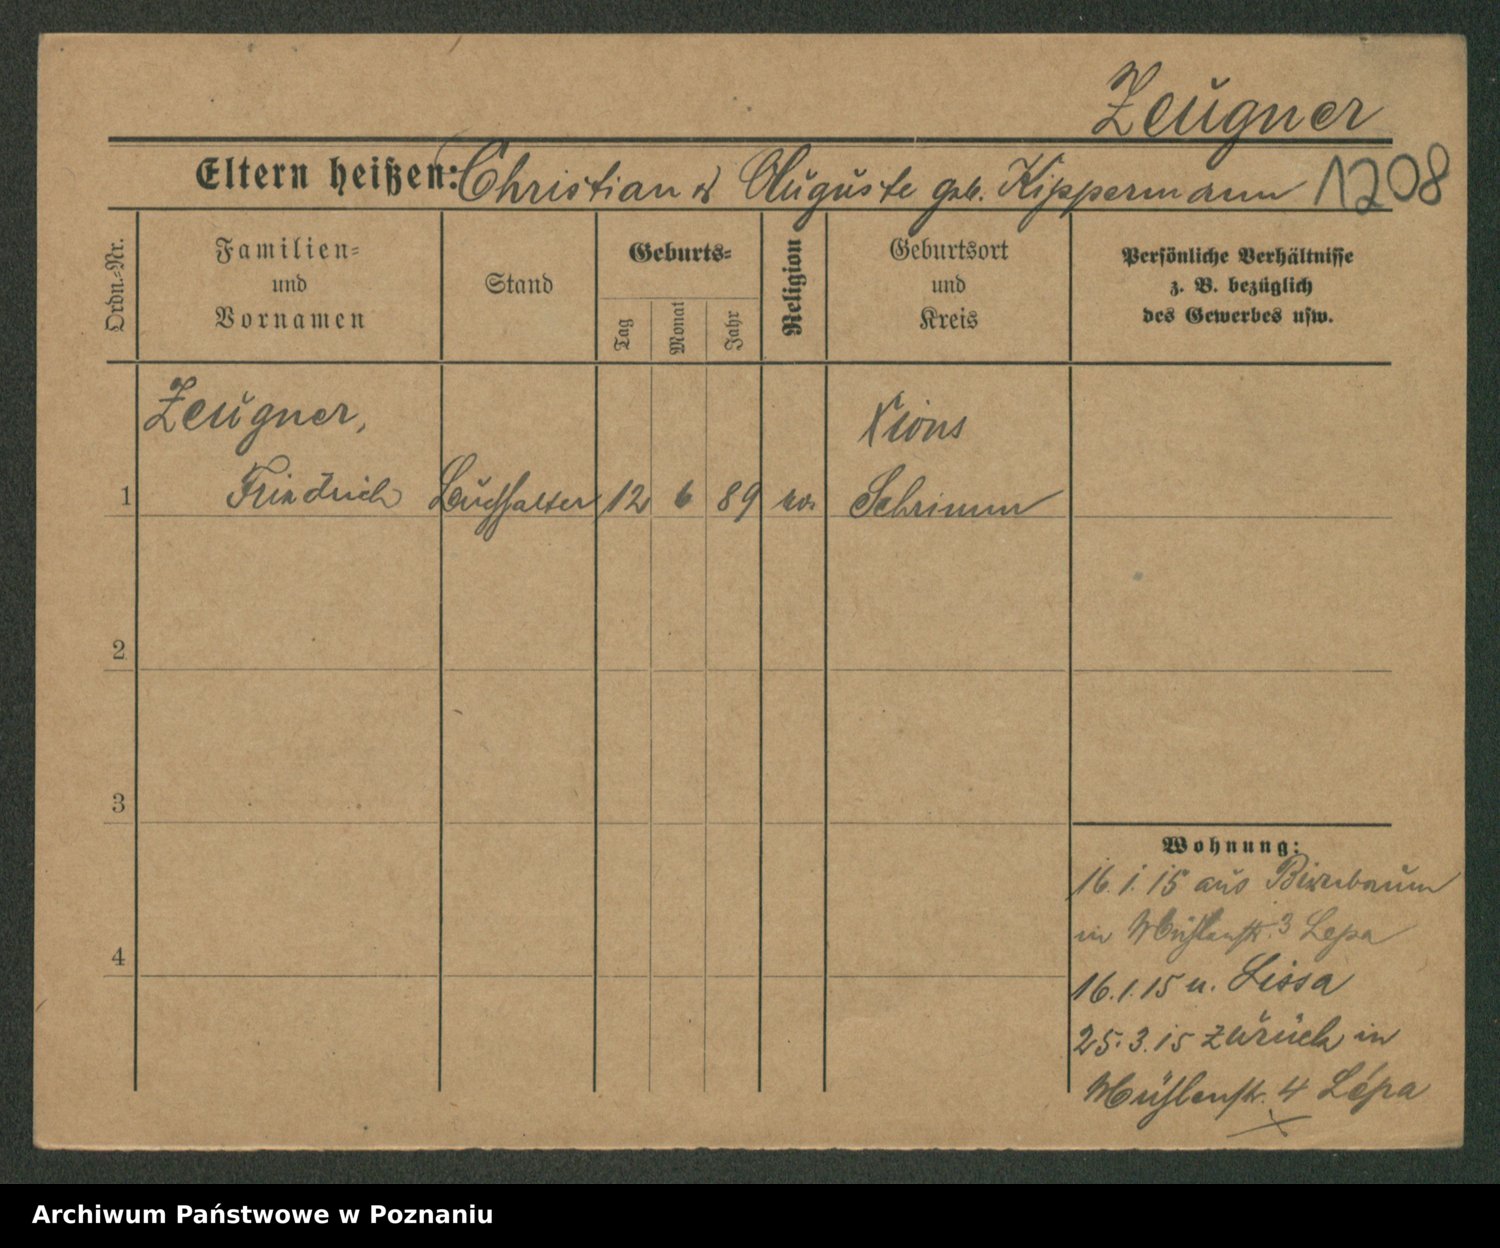 Zeugner
Eltern heißen: Christian & Auguste geb. Kippermann 1208
Ordn.-Nr.
Familien-
und
Vornamen
Stand
Geburts-
Tag
Monat
Jahr
Religion
Geburtsort
und
Kreis
Persönliche Verhältnisse
z. B. bezüglich
des Gewerbes usw.
Zeugner,
Xions
1 Friedrich Buchhalter 12 6 89 ev. Schrimm
2
3
4
Wohnung:
16. 1. 15 aus Birnbaum
in Mühlenstr. 3 Lepa
16. 1. 15 n. Lissa
25. 3. 15 zurück in
Mühlenstr. 4 Lépa
Archiwum Państwowe w Poznaniu